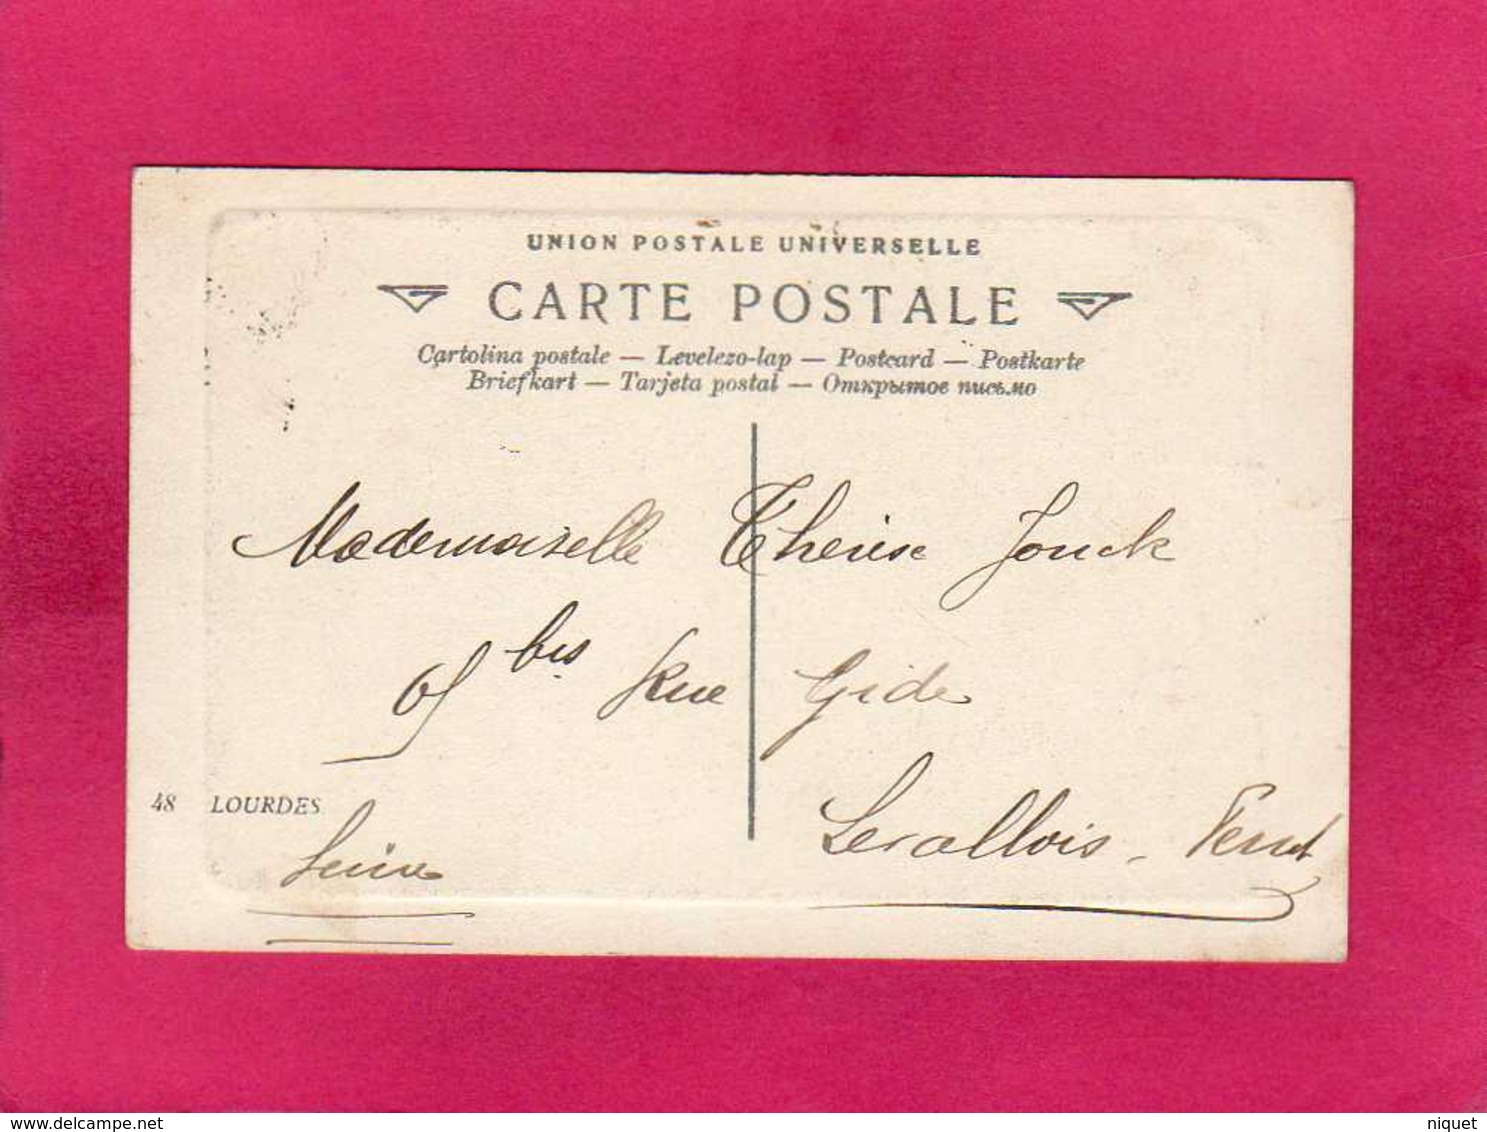 UNION POSTALE UNIVERSELLE
CARTE POSTALE
Cartolina postale — Levelezo-lap — Postcard — Postkarte
Briefkart — Tarjeta postal — Открытое письмо
Mademoiselle Therese Jouck
bis Rue Gide
Levallois - Perret
48 LOURDES
Seine
delcampe.net
niquet